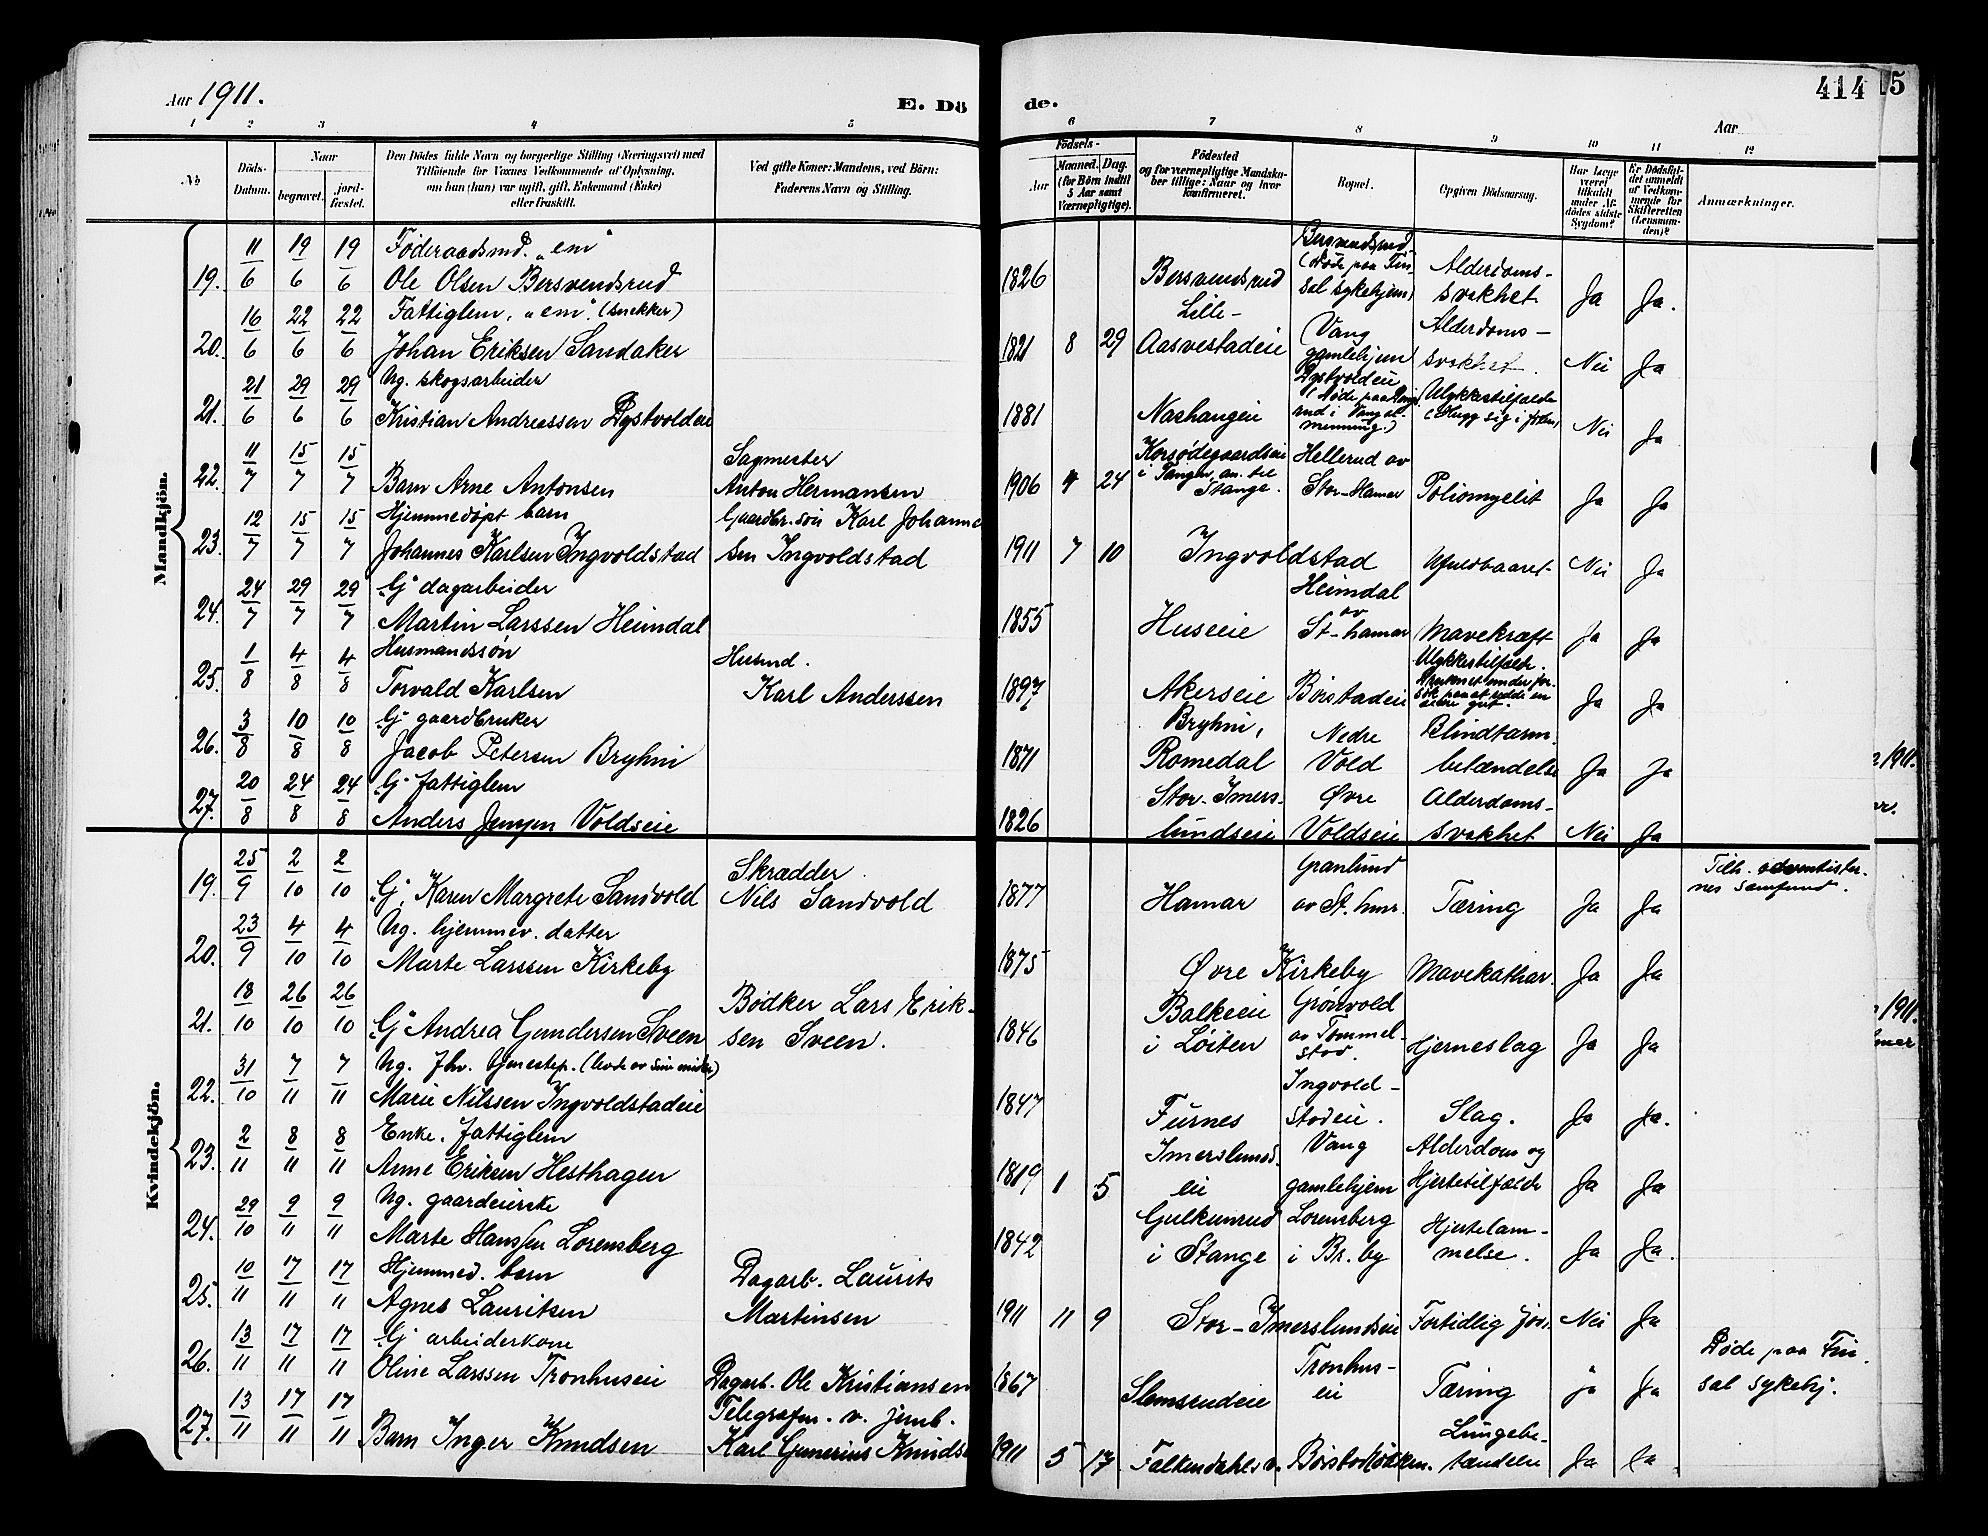 Aar 1911.
E. Dö
de.
414
15
Aar
1 2 3 4 5 6 7 8 9 10 11 12
No
Döds-Datum.
Naar
begravet.
jord-fæstet.
Den Dödes fulde Navn og borgerlige Stilling (Næringsvei) med
Tilföiende for Voxnes Vedkommende af Oplysning,
om han (hun) var ugift, gift, Enkemand (Enke)
eller fraskilt.
Ved gifte Koner: Mandens, ved Börn:
Faderens Navn og Stilling.
Födsels-
Aar
Maaned. Dag.
(for Börn indtil
5 Aar samt
Værnepligtige).
Födested
og for værnepligtige Mandska-
ber tillige: Naar og hvor
konfirmeret.
Bopæl.
Opgiven Dödsaarsag.
Har Læge
været
tilkaldt
under Af-
dödes sidste
Sygdom?
Er Dödsfal-
det anmeldt
af Vedkom-
mende for
Skifteretten
(Lensman-
den)?
Anmærkninger.
Mandkjön.
19. 11/6 19/6 19/6 Föderaadsmd. "em"
Ole Olsen Bersvendsrud
1826 Bersvendsrud Bersvendsrud (Döde paa Fin-
sal sykehjem) Alderdoms-
svakhet Ja Ja.
20. 16/6 22/6 22/6 Fattiglem, "em". (snekker)
Johan Eriksen Sandaker
1821 8 29 Lille-
Aasvestadeie Vang
gamlehjem Alderdoms-
svakhet. Nei Ja
21. 21/6 29/6 29/6 Ug. skogsarbeider
Kristian Andreassen Dystvoldeie
1881 Nashaugeie Dystvoldeie
(Döde paa
rud i Vang al-
menning.) Ulykkestilfælde
(Hugg sig i foten) Nei Ja
22. 11/7 15/7 15/7 Barn Arne Antonsen
Sagmester
Anton Hermansen
1906 4 24 Korsödegaardseie
i Tangen, an. til
Stange. Hellerud av
Stor-Hamar Poliomyelit Ja Ja
23. 12/7 15/7 15/7 Hjemmedöpt barn
Johannes Karlsen Ingvoldstad
Gaardbr. sön Karl Johanne
sen Ingvoldstad
1911 7 10 Ingvoldstad Ufuldbaaret Nei Ja
24. 24/7 29/7 29/7 "G" dagarbeider
Martin Larssen Heimdal
1855 Huseie Heimdal
av
St-hamar Mavekræft Ja Ja
25. 1/8 4/8 4/8 Husmandssön
Torvald Karlsen
Husmd.
Karl Anderssen
1897 Akerseie Börstadeie Ulykkestilfælde.
Druknet under for-
sök paa at redde en
anden gut. Ja Ja
26. 3/8 10/8 10/8 "G" gaardbruker
Jacob Petersen Bryhni
1871 Bryhni,
Romedal Nedre
Vold Blindtarm.
betændelse Ja Ja
27. 20/8 24/8 24/8 "G" fattiglem
Anders Jensen Voldseie
1826 Stor-Imers-
lundseie Övre
Voldseie Alderdoms-
svakhet Nei Ja
Kvindekjön.
19. 25/9 2/10 2/10 "G", Karen Margrete Sandvold
Skrædder
Nils Sandvold
1877 Hamar Granlund
av St. hmr. Tæring Ja Ja Tilh. adventister-
nes samfund.
20. 23/9 4/10 4/10 Ug. hjemmev. datter
Marte Larssen Kirkeby
1875 Övre Kirkeby Mavekathar. Ja Ja
21. 18/10 26/10 26/10 "G" Andrea Gundersen Sveen
Bödker Lars Erik-
sen Sveen.
1846 Balkeeie
i Löiten Grönvold
av Tommel-
stad. Hjerneslag Ja Ja
22. 31/10 7/11 7/11 Ug. fhv. tjenestep. (levde av sine midler)
Marie Nilssen Ingvoldstadeie
1847 Furnes Ingvold-
stadeie. Slag. Ja Ja.
23. 2/11 8/11 8/11 Enke. fattiglem
Anne Eriksen Hesthagen
1819 1 5 Imerslunds-
eie Vang
gamlehjem Alderdom og
Hjertetilfælde Ja Ja
24. 29/10 9/11 9/11 Ug. gaardeierske
Marte Hanssen Lorensberg
1842 Gulkunrud
i Stange Lorensberg
i Br. by Hjertelam-
melse. Ja Ja.
25. 10/11 17/11 17/11 Hjemmed. barn
Agnes Lauritsen
Dagarb. Laurits
Martinsen
1911 11 9 Stor-Imerslundseie Fortidlig föds. Nei Ja
26. 13/11 17/11 17/11 "G" arbeiderkone
Oline Larssen Tronhuseie
Dagarb. Ole Kristiansen
1867 Slemsrudeie Tronhus-
eie Tæring Ja Ja Döde paa Fin-
sal sykehj.
27. 13/11 17/11 17/11 Barn Inger Knudsen
Telegrafm. v. jernb.
Karl Gunerius Knuds
1911 5 17 Falkendahl Lungebe-
tændelse Ja Ja
1911.
1911.